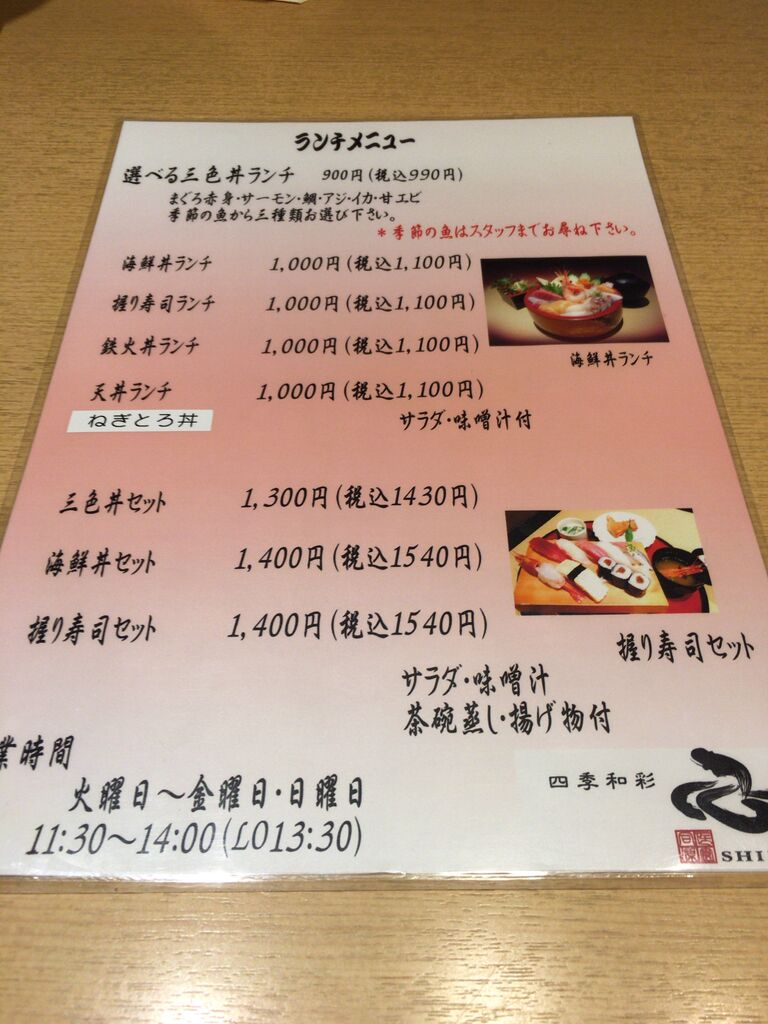 ランチメニュー
選べる三色丼ランチ 900円(税込990円)
まぐろ赤身・サーモン・鯛・アジ・イカ・甘エビ
季節の魚から三種類お選び下さい。
*季節の魚はスタッフまでお尋ね下さい。
海鮮丼ランチ 1,000円(税込1,100円)
握り寿司ランチ 1,000円(税込1,100円)
鉄火丼ランチ 1,000円(税込1,100円)
海鮮丼ランチ
天丼ランチ 1,000円(税込1,100円)
ねぎとろ丼
サラダ・味噌汁付
三色丼セット 1,300円(税込1430円)
海鮮丼セット 1,400円(税込1540円)
握り寿司セット 1,400円(税込1540円)
握り寿司セット
サラダ・味噌汁
茶碗蒸し・揚げ物付
業時間
火曜日~金曜日・日曜日
11:30~14:00(LO13:30)
四季和彩
SHI